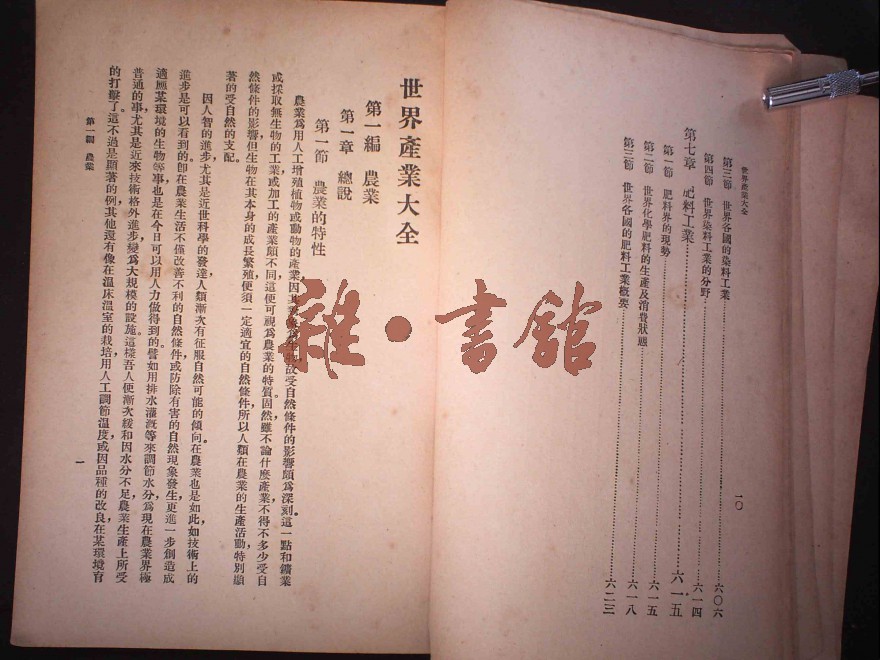 世界產業大全
一〇
第三節 世界各國的染料工業……六〇六
第四節 世界染料工業的分野……六一四
第七章 肥料工業……六一五
第一節 肥料界的現勢……六一五
第二節 世界化學肥料的生產及消費狀態……六一八
第三節 世界各國的肥料工業概要……六二三
世界產業大全
第一編 農業
第一章 總說
第一節 農業的特性
農業為用人工增殖植物或動物的產業因其對象為生物故受自然條件的影響頗為深刻。這一點和鑛業
或採取無生物的工業或加工的產業頗不同,這便可視為農業的特質。固然,雖不論什麼產業,不得不多少受自
然條件的影響,但生物在其本身的成長繁殖,便須一定適宜的自然條件,所以人類在農業的生產活動,特別顯
著的受自然的支配。
因人智的進步,尤其是近世科學的發達,人類漸次有征服自然可能的傾向。在農業也是如此,如技術上的
進步是可以看到的。即在農業生活不僅改善不利的自然條件,或防除有害的自然現象發生,更進一步創造成
適應某環境的生物等事,也是在今日可以用人力做得到的。譬如用排水灌溉等來調節水分,為現在農業界極
普通的事,尤其是近來技術格外進步,變為大規模的設施。這樣,吾人便漸次緩和因水分不足,農業生產上所受
的打擊了。這不過是顯著的例,其他還有像在溫床溫室的栽培,用人工調節溫度,或因品種的改良,在某環境育
第一編 農業
一
雜·書館